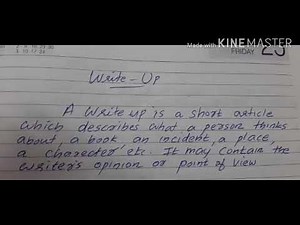 Made with KINEMASTER
FRIDAY 23
Write-Up
A write up is a short article
which describes what a person thinks
about, a book, an incident, a place,
a character etc. It may contain the
writer's opinion or point of view